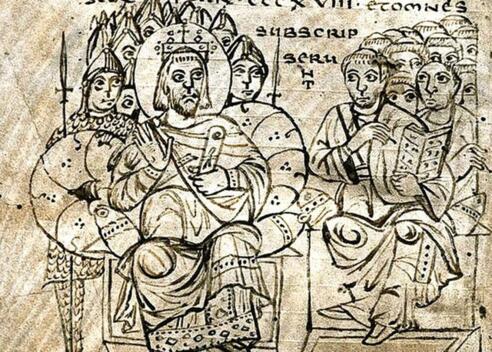 CCCXVIII· ETOMNES
SUBSCRIP
SERU
NT